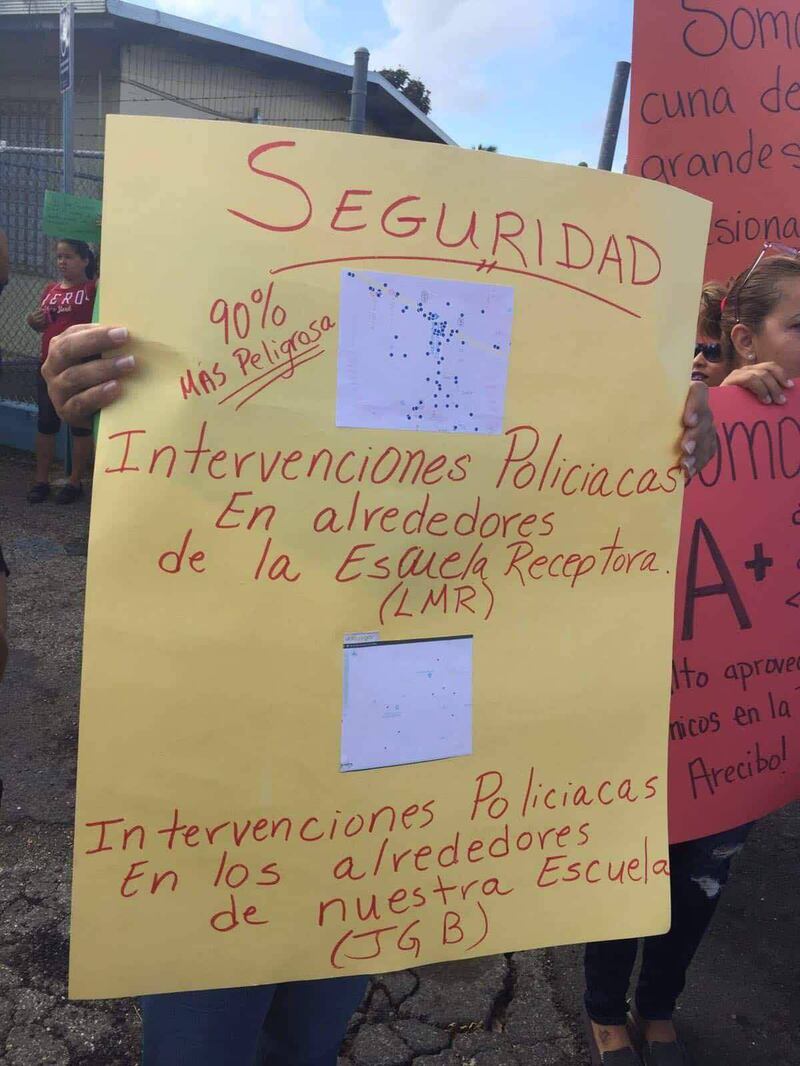 SEGURIDAD
90%
MAS Peligrosa
Intervenciones Policiacas
En alrededores
de la Escuela Receptora.
(LMR)
Intervenciones Policiacas
En los alrededores
de nuestra Escuela
(JGB)
Som
cuna de
grandes
siona
OMO
A+
lto aprove
nicos en la
Arecibo!
ERO